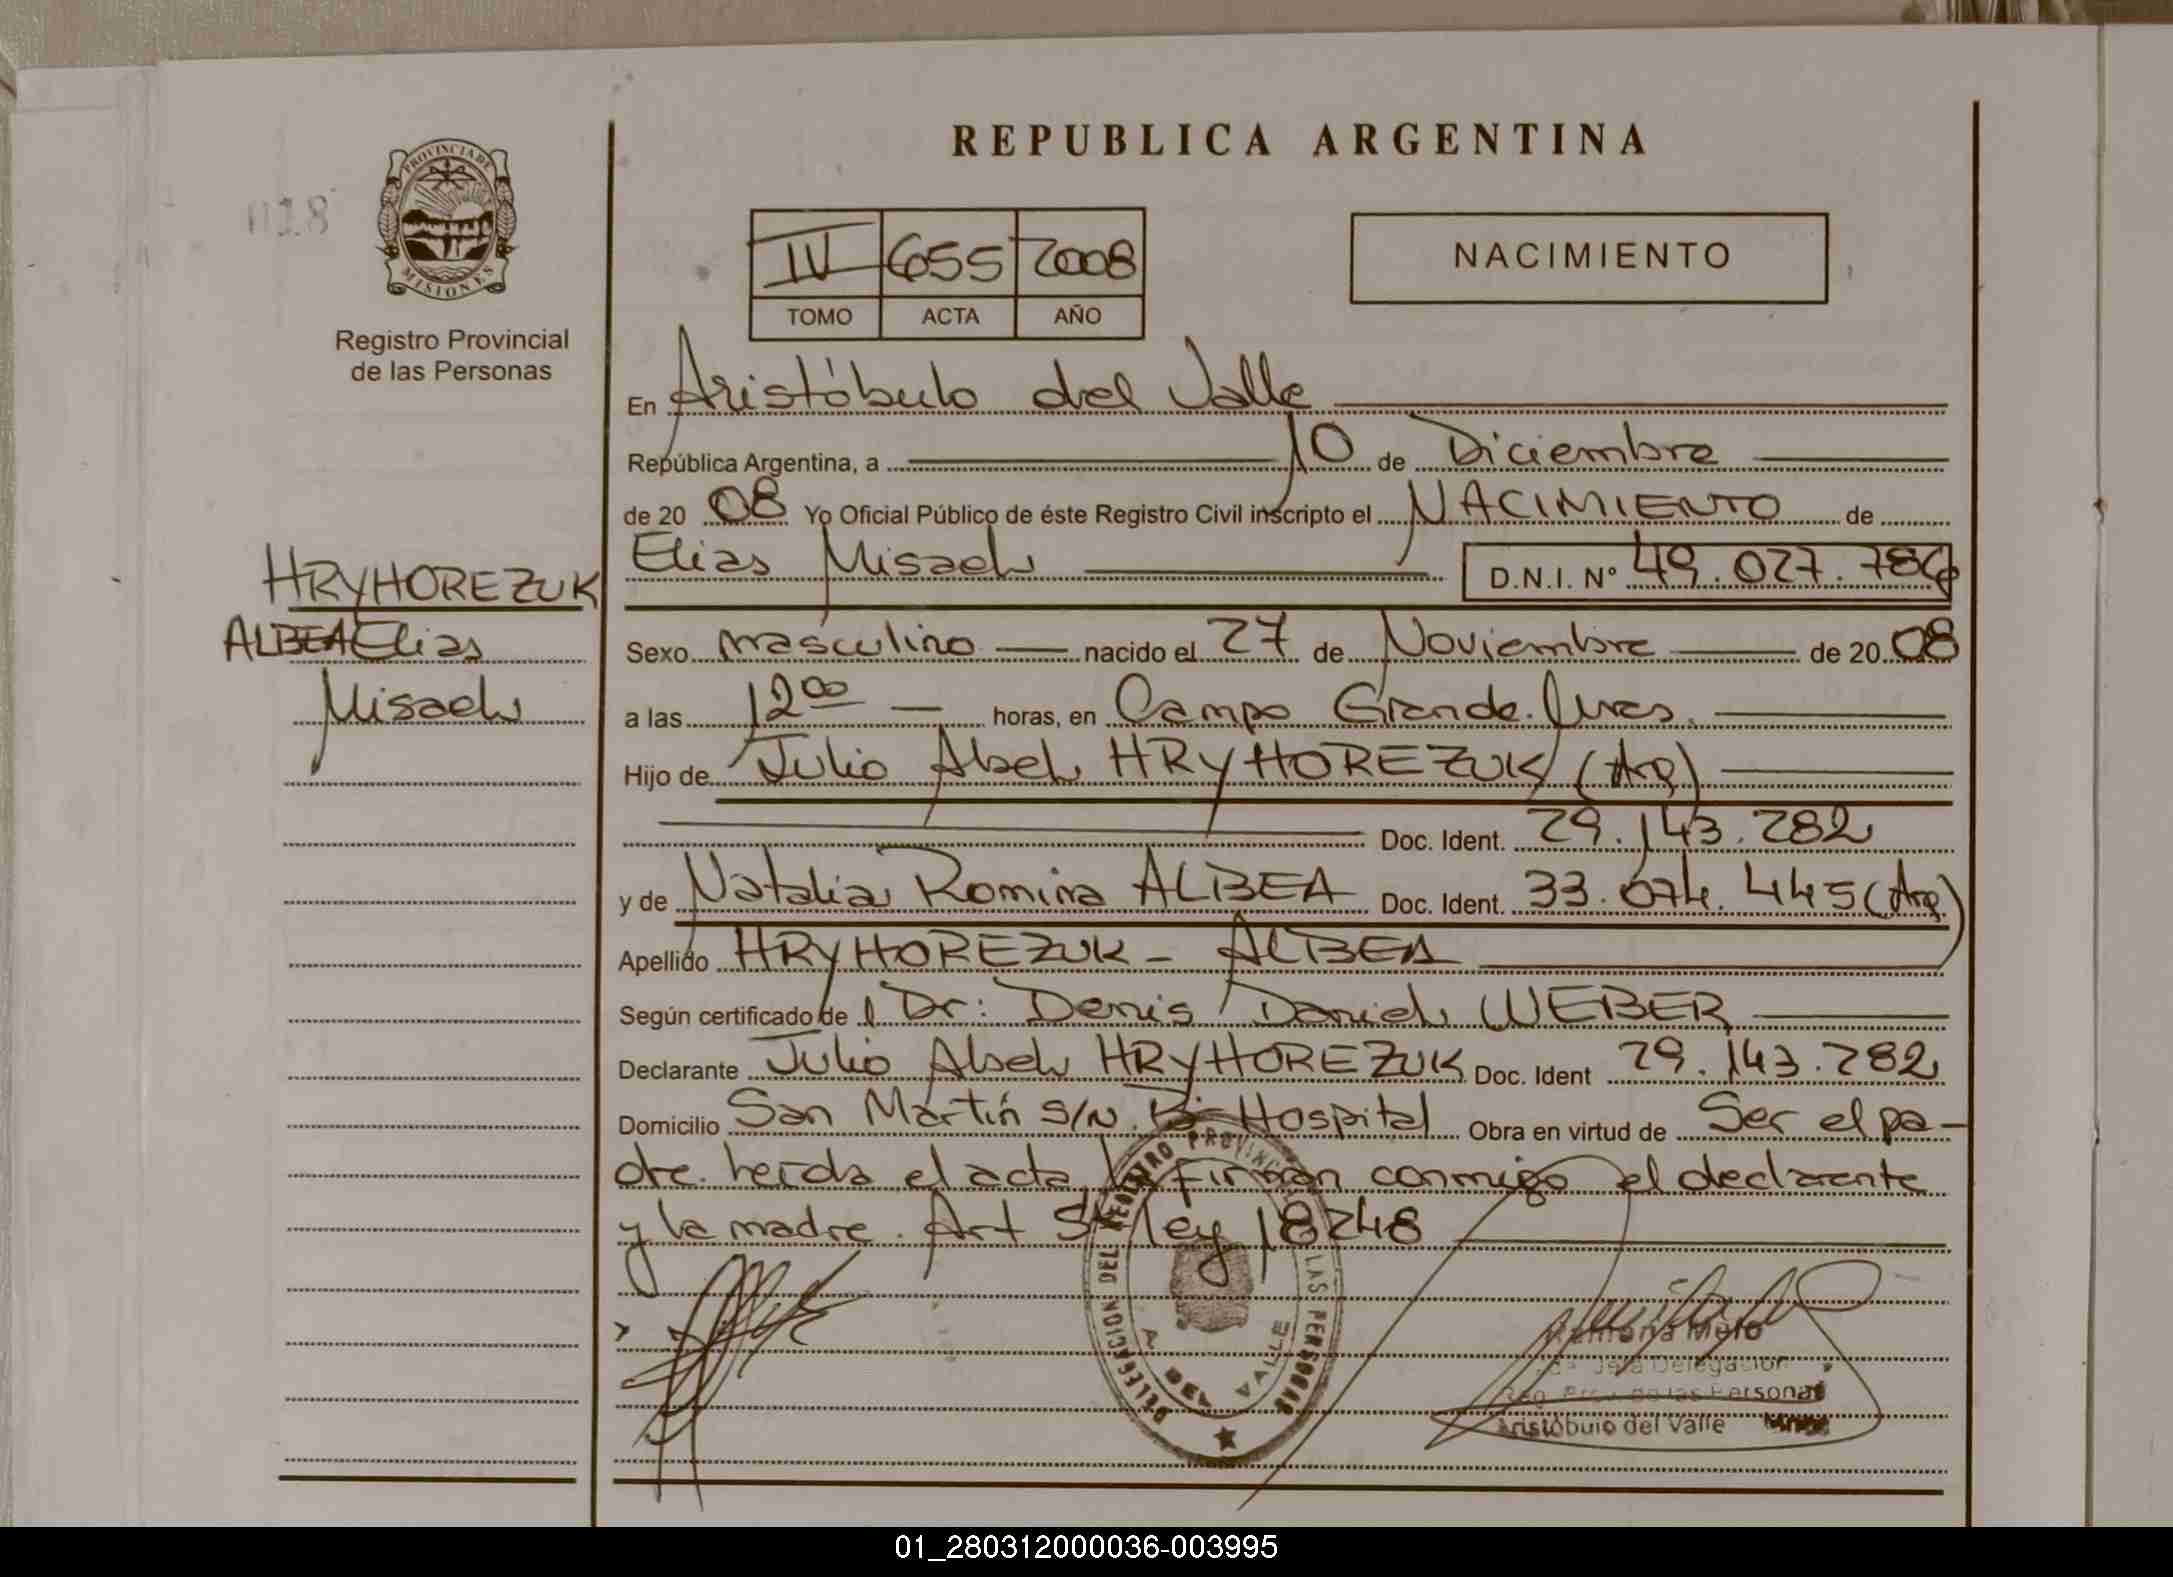 REPUBLICA ARGENTINA
018
PROVINCIA DE
MISIONES
Registro Provincial
de las Personas
IV 655 2008
TOMO ACTA AÑO
NACIMIENTO
En Aristóbulo del Valle
República Argentina, a 10 de Diciembre
de 20 08 Yo Oficial Público de éste Registro Civil inscripto el NACIMIENTO de
Elias Misael D.N.I. N° 49.027.786
HRYHOREZUK
ALBEA Elias
Misael
Sexo masculino nacido el 27 de Noviembre de 20 08
a las 12 00 horas, en Campo Grande.
Hijo de Julio Abel HRYHOREZUK (Arg)
Doc. Ident. 29.143.282
y de Natalia Romina ALBEA Doc. Ident. 33.074.445 (Arg)
Apellido HRYHOREZUK - ALBEA
Según certificado de l Dr: Denis Daniel WEBER
Declarante Julio Abel HRYHOREZUK Doc. Ident 29.143.282
Domicilio San Martín S/N. Hospital Obra en virtud de Ser el pa-
dre. leida el acta, la firman conmigo el declarante
y la madre. Art 5° ley 18248
DELEGACION DEL REGISTRO PROVINCIAL LAS PERSONAS
A. DEL VALLE
Ramona Melo
Jefa Delegación
Reg. Prov. de las Personas
Aristóbulo del Valle Mnes
01_280312000036-003995